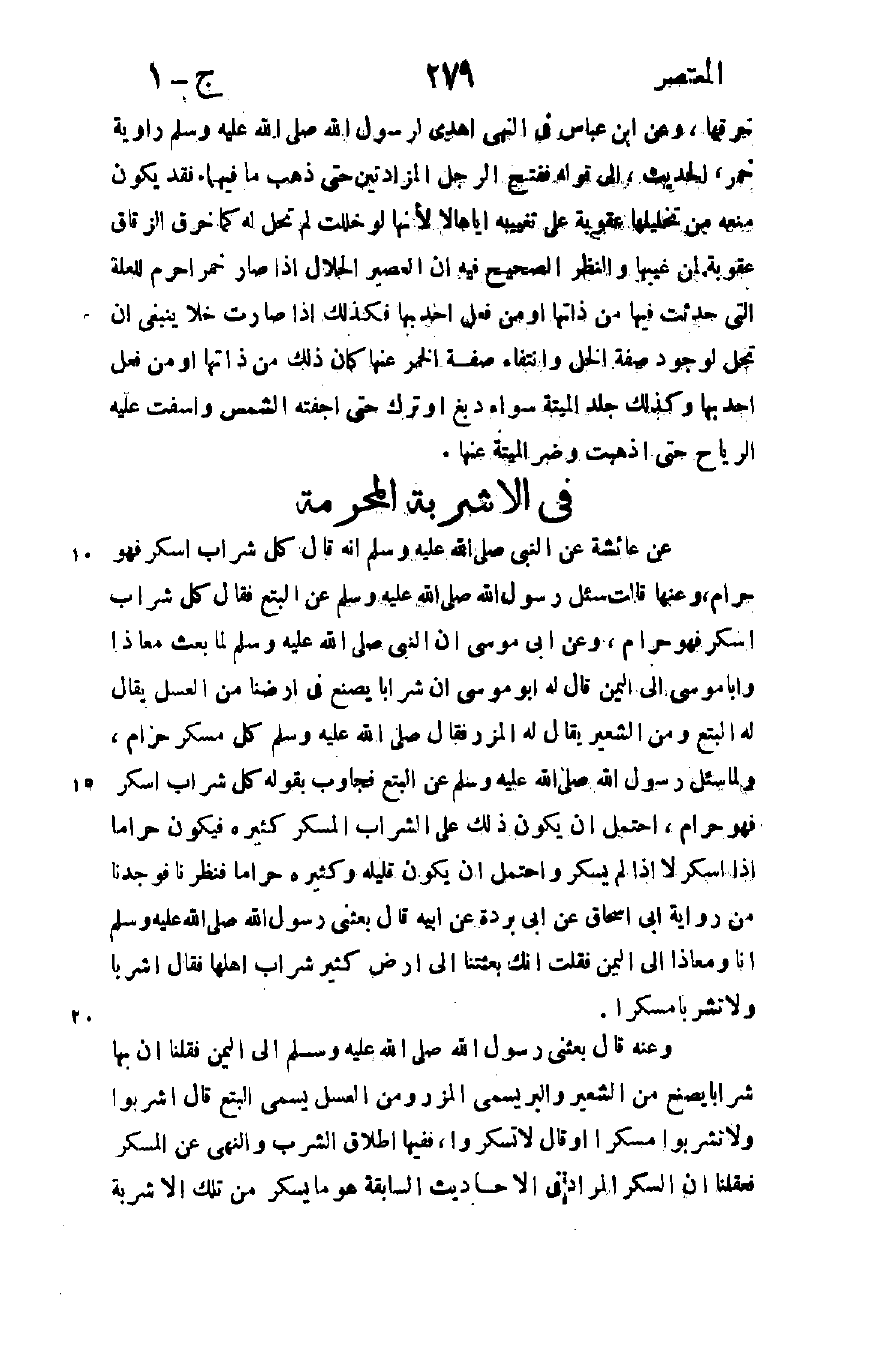 المعتصر ٢٧٩ ج - ١
تحرقها، وعن ابن عباس فى النهى اهدى لرسول الله صلى الله عليه وسلم راوية
خمر، الحديث، الى قوله ففتح الرجل المزادتين حتى ذهب ما فيهما. فقد يكون
منعه من تخليلها عقوبة على تغييبه اياها لا لأنها لو خللت لم تحل له كما خرق الزقاق
عقوبة لمن غيبها والنظر الصحيح فيه ان العصير الحلال اذا صار خمرا حرم للعلة
التى حدثت فيها من ذاتها او من فعل احد بها فكذلك اذا صارت خلا ينبغى ان
تحل لوجود صفة الخل وانتفاء صفة الخمر عنها كان ذلك من ذاتها او من فعل
احد بها وكذلك جلد الميتة سواء دبغ او ترك حتى اجفته الشمس واسفت عليه
الرياح حتى اذهبت وضر الميتة عنها .
فى الاشربة المحرمة
عن عائشة عن النبى صلى الله عليه وسلم انه قال كل شراب اسكر فهو ١٠
حرام، وعنها قالت سئل رسول الله صلى الله عليه وسلم عن البتع فقال كل شراب
اسكر فهو حرام، وعن ابى موسى ان النبى صلى الله عليه وسلم لما بعث معاذا
وابا موسى الى اليمن قال له ابو موسى ان شرابا يصنع فى ارضنا من العسل يقال
له البتع ومن الشعير يقال له المزر فقال صلى الله عليه وسلم كل مسكر حرام ،
ولما سئل رسول الله صلى الله عليه وسلم عن البتع فجاوب بقوله كل شراب اسكر ١٥
فهو حرام، احتمل ان يكون ذلك على الشراب المسكر كثيره فيكون حراما
اذا اسكر لا اذا لم يسكر واحتمل ان يكون قليله وكثيره حراما فنظرنا فوجدنا
من رواية ابى اسحاق عن ابى بردة عن ابيه قال بعثنى رسول الله صلى الله عليه وسلم
انا ومعاذا الى اليمن فقلت انك بعثتنا الى ارض كثير شراب اهلها فقال اشربا
ولا تشربا مسكرا . ٢٠
وعنه قال بعثنى رسول الله صلى الله عليه وسلم الى اليمن فقلنا ان بها
شرابا يصنع من الشعير والبر يسمى المزر ومن العسل يسمى البتع قال اشربوا
ولا تشربوا مسكرا او قال لا تسكروا، ففيها اطلاق الشرب والنهى عن المسكر
فعقلنا ان السكر المراد فى الاحاديث السابقة هو ما يسكر من تلك الاشربة